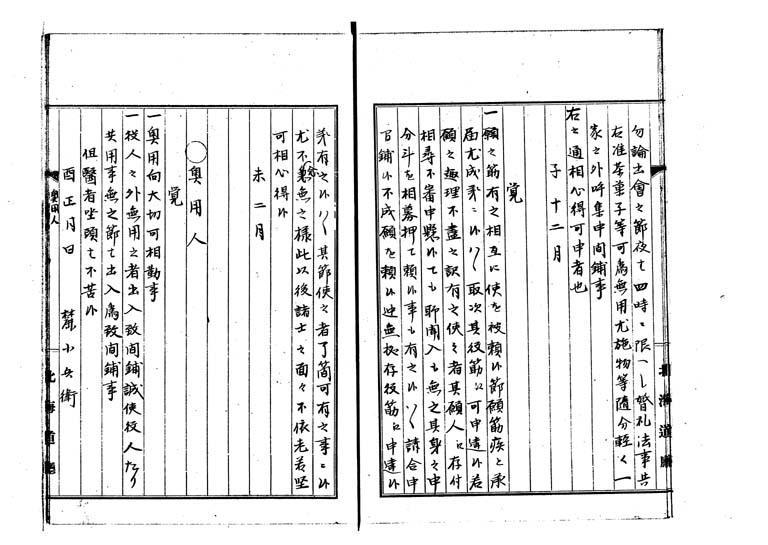 勿論出會之節夜ハ四時ニ限ヘし婚礼法事共
右准茶菓子等可為無用尤施物等随分軽く一
家之外呼集申間鋪事
右之通相心得可申者也
子十二月
覚
一願之筋有之相互に使を被頼候節願筋疾と承
届尤成義ニ候ハヽ取次其役筋江可申達候若
願之趣理不盡之訳有之使之者其願人江存付
相尋不審申懸候ても聊聞入も無之其身之申
分斗を相募押て頼候事も有之候ハヽ請合申
間鋪候不成願を頼候迚無拠存役筋江申達候
義有之候ハヽ其節使之者了簡可有之事ニ候
尤不義無之様此以後諸士之面々不依老若堅
可相心得候
未二月
○奥用人
覚
一奥用向大切可相勤事
一役人之外無用之者出入致間鋪誠使役人たり
共用事無之節ハ出入為致間鋪事
但醫者坐頭ハ不苦候
酉正月日 麓小兵衛
奥用人
北海道廳
北海道廳